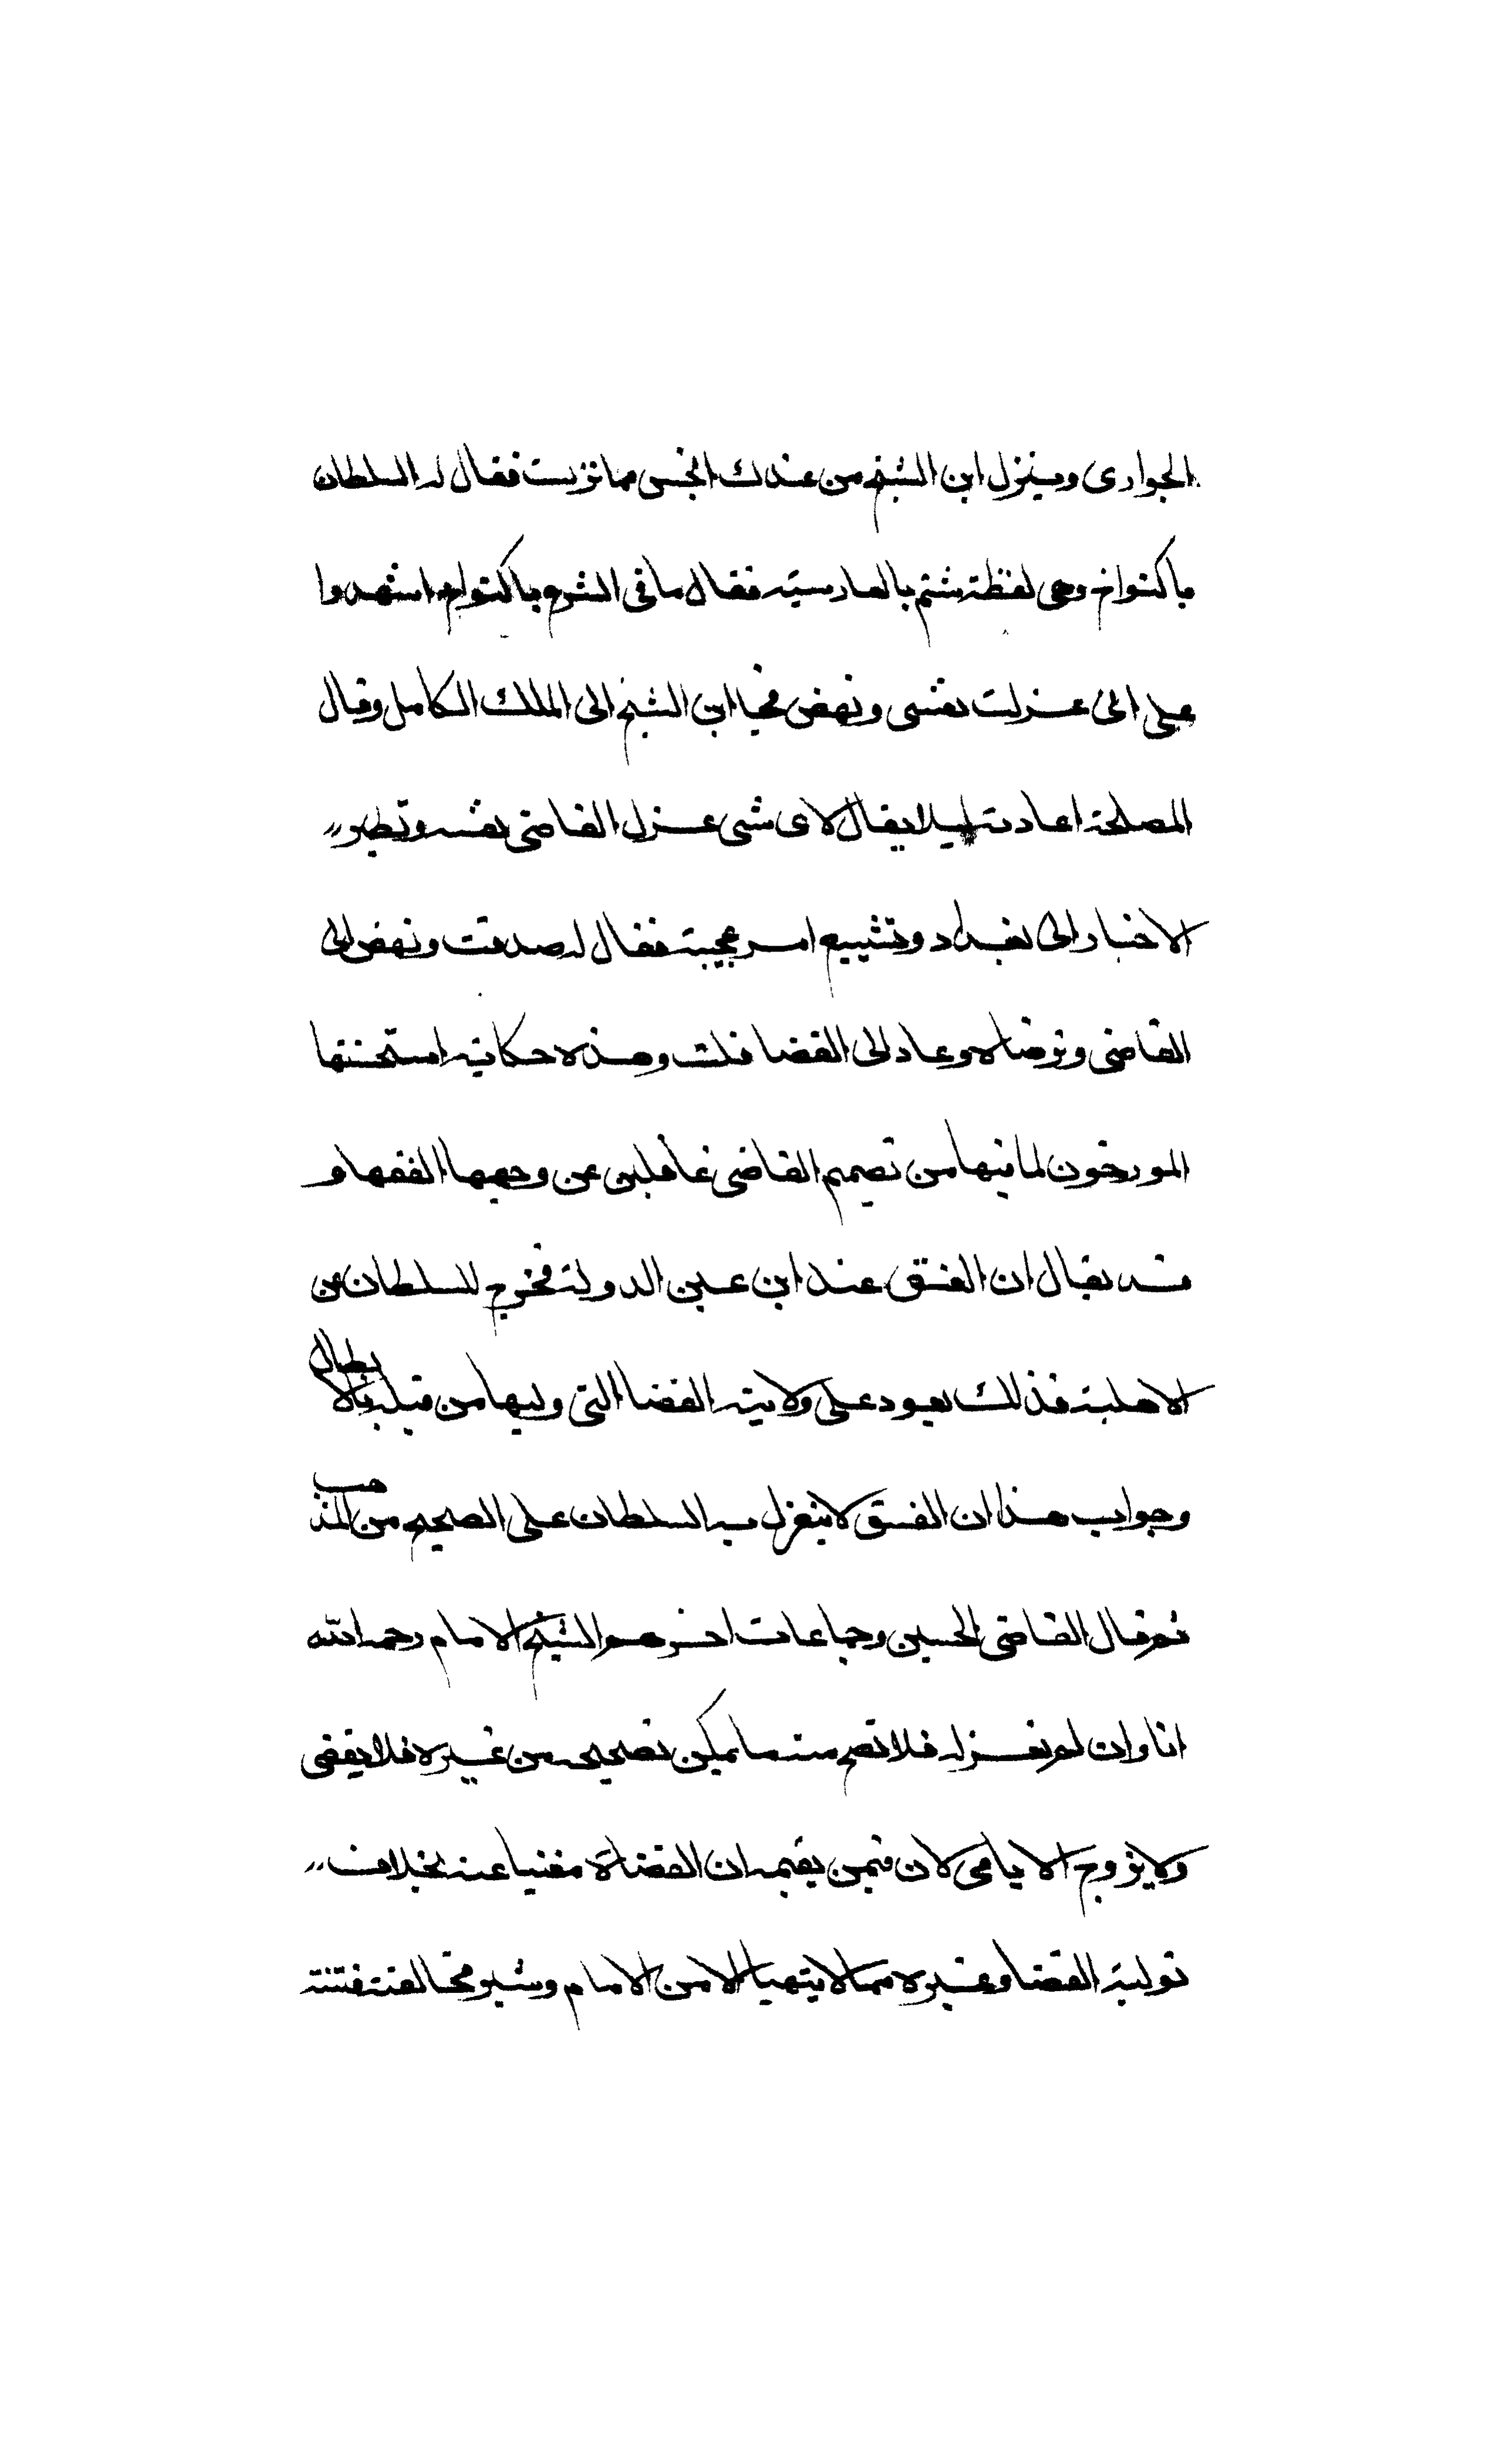 الجوارى وينزل ابن الشيخ من عندك انجس مما نزلت فقال له السلطان
ياكنواخ وهى لفظة شتم بالفارسية فقال ما فى الشرع ياكنواخ اشهدوا
على انى عزلت نفسى ونهض فجا ابن الشيخ الى الملك الكامل وقال
المصلحة اعادته ليلا يقال لاى شى عزل القاضى نفسه وتطير
الاخبار الى بغداد وتشييع امر عجيبة فقال له صدقت ونهض الى
القاضى وترضاه وعاد الى القضا قلت وهذه حكاية استحسنها
المورخون لما فيها من تصميم القاضى غافلين عن وجهها الفقهى و
قد يقال ان الفسق عند ابن عين الدولة مخرج للسلطان عن
الاهلية فذلك يعود على ولايته القضا التى وليها من قبله بالابطال
وجواب هذا ان الفسق لا ينعزل به السلطان على الصحيح من المذهب
ثم قال القاضى الحسين وجماعات اخرهم الشيخ الامام رحمه الله
انا وان لم نعزله فلا تصح منه ما يمكن تصحيحه من غيره فلا يقضى
ولا يزوج الايامى لان فيمن يقيمه من القضاة مغنيا عنه بخلاف
تولية القضا وغيره مما لا يتهيا الا من الامام وتثير مخالفته فتنة